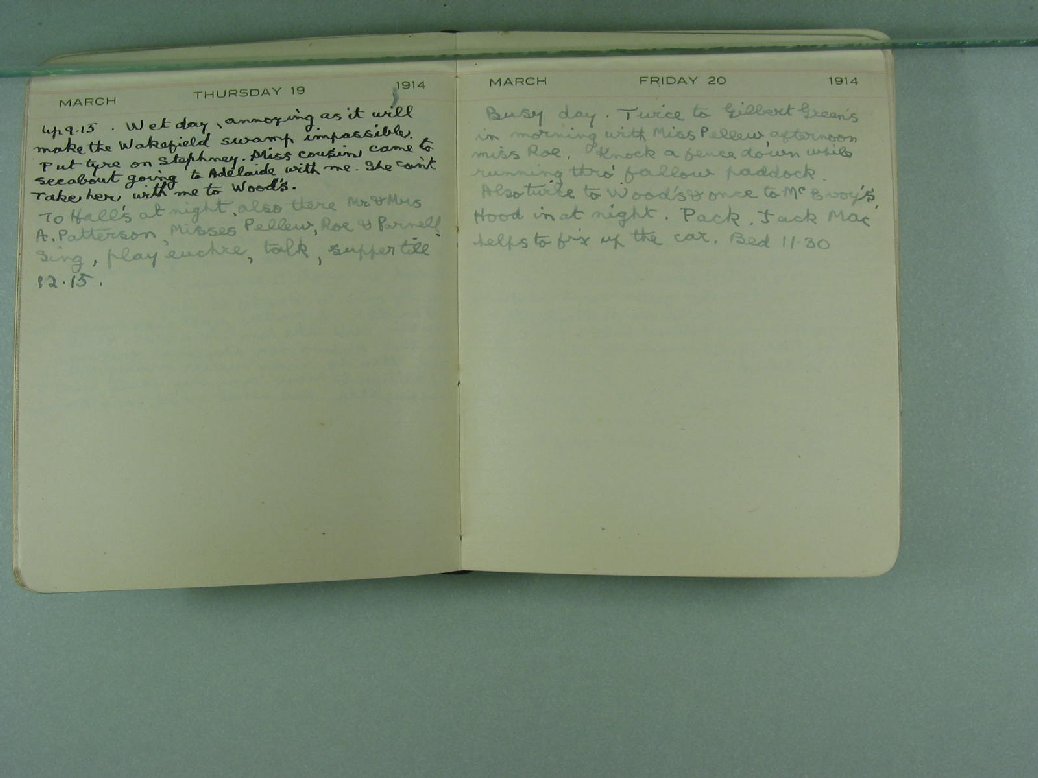 MARCH THURSDAY 19 1914
up 9.15. Wet day, annoying as it will
make the Wakefield swamp impassible.
Put tyre on Stephney. Miss cousin came to
see about going to Adelaide with me. She can't
Take her with me to Wood's.
To Hall's at night, also there Mr & Mrs
A. Patterson, Misses Pellew, Roe & Parnell
Sing, play euchre, talk, supper till
12.15.
MARCH FRIDAY 20 1914
Busy day. Twice to Gilbert Green's
in morning with Miss Pellew afternoon
miss Roe. Knock a fence down while
running thro' fallow paddock.
Also twice to Wood's & once to McEvoy's.
Hood in at night. Pack. Jack Mac
helps to fix up the car. Bed 11.30